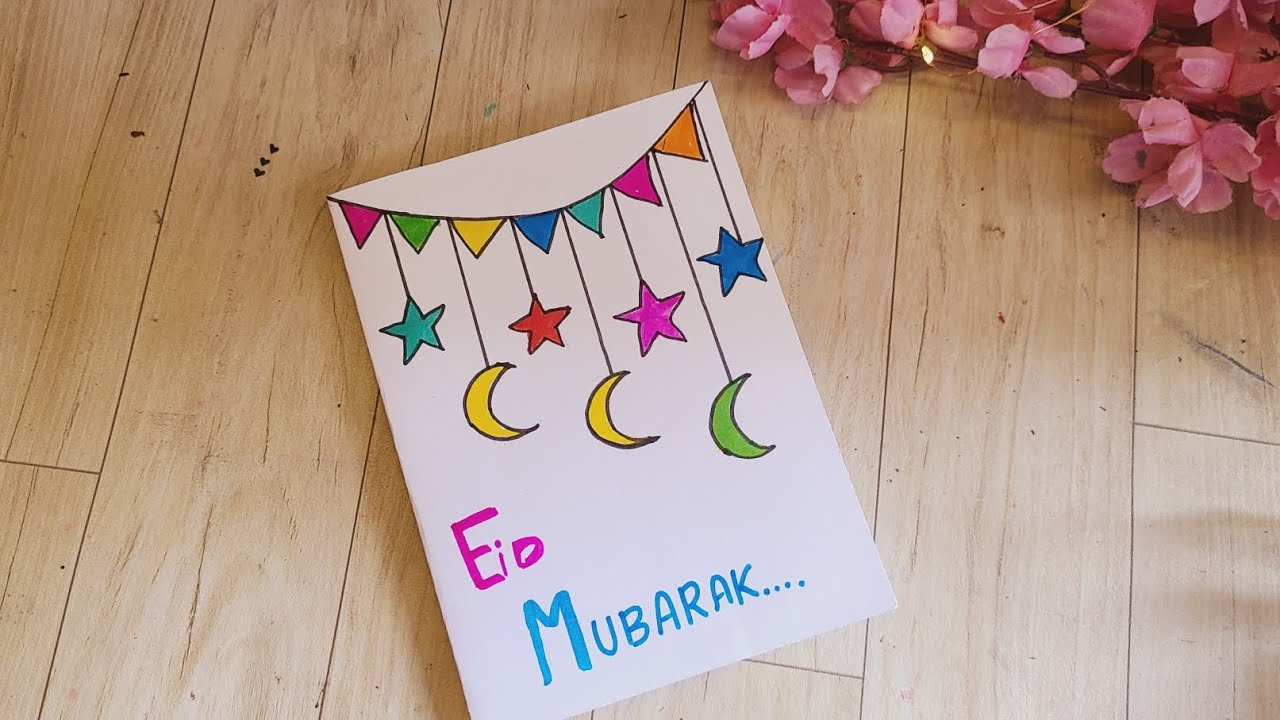 Eid
MUBARAK....